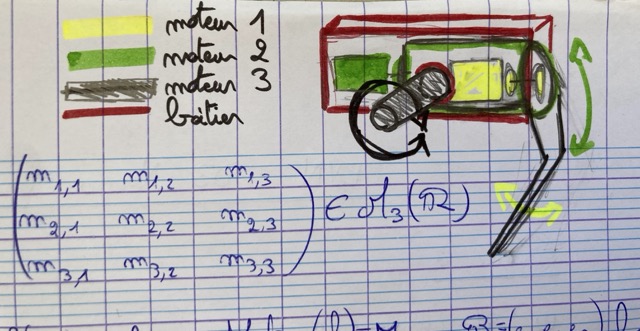 moteur 1
moteur 2
moteur 3
bâtier
m1,1 m1,2 m1,3
m2,1 m2,2 m2,3
m3,1 m3,2 m3,3
∈ M3(ℝ)